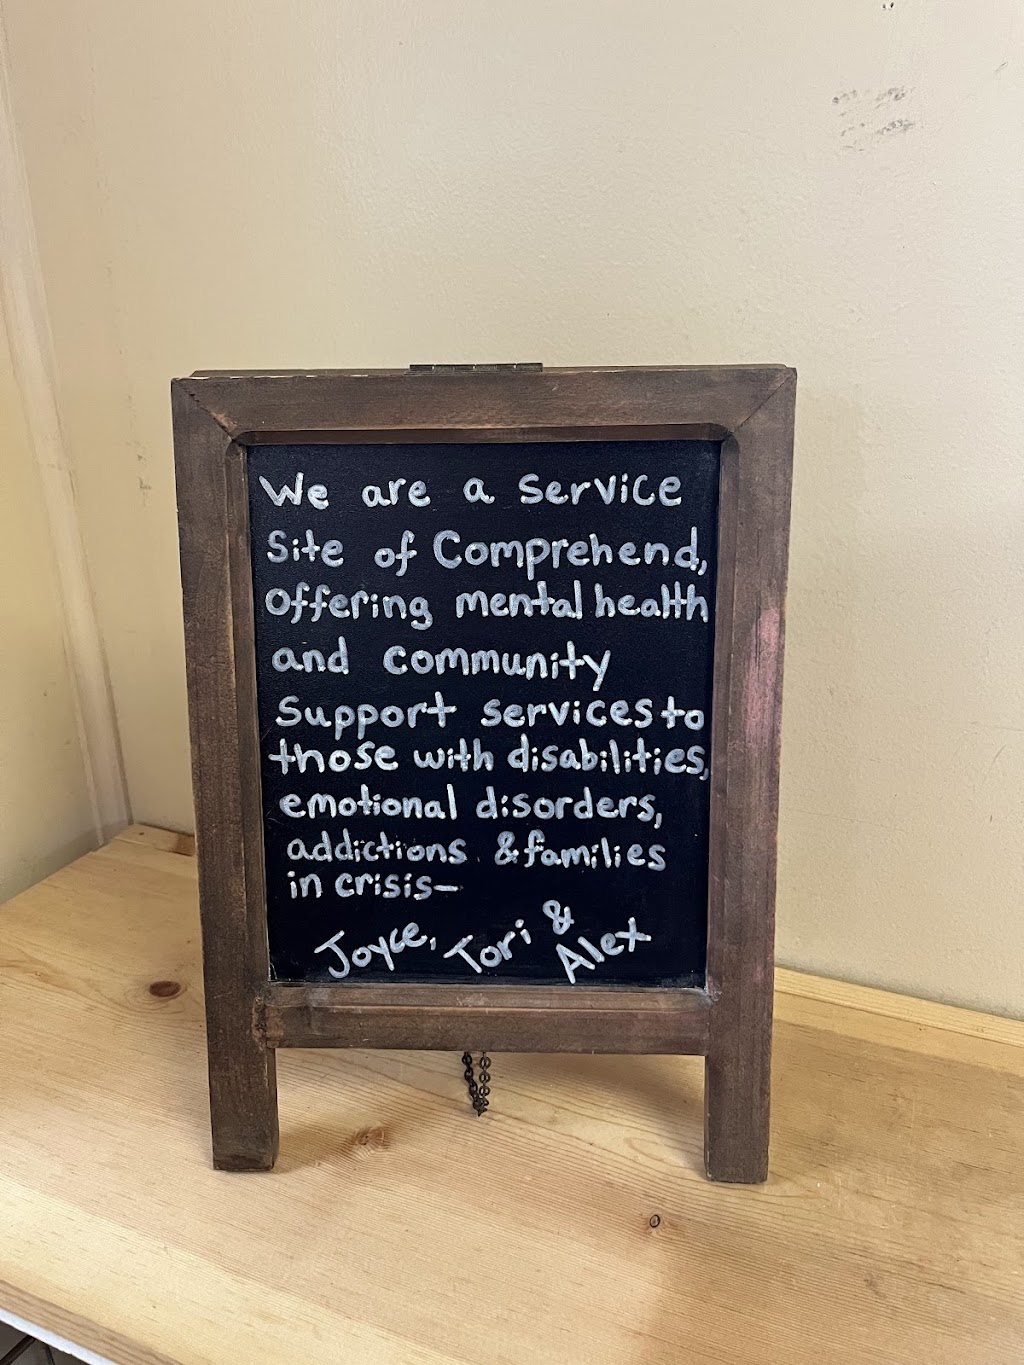 We are a service
Site of Comprehend,
offering mental health
and community
Support services to
those with disabilities,
emotional disorders,
addictions & families
in crisis—
Joyce, Tori & Alex